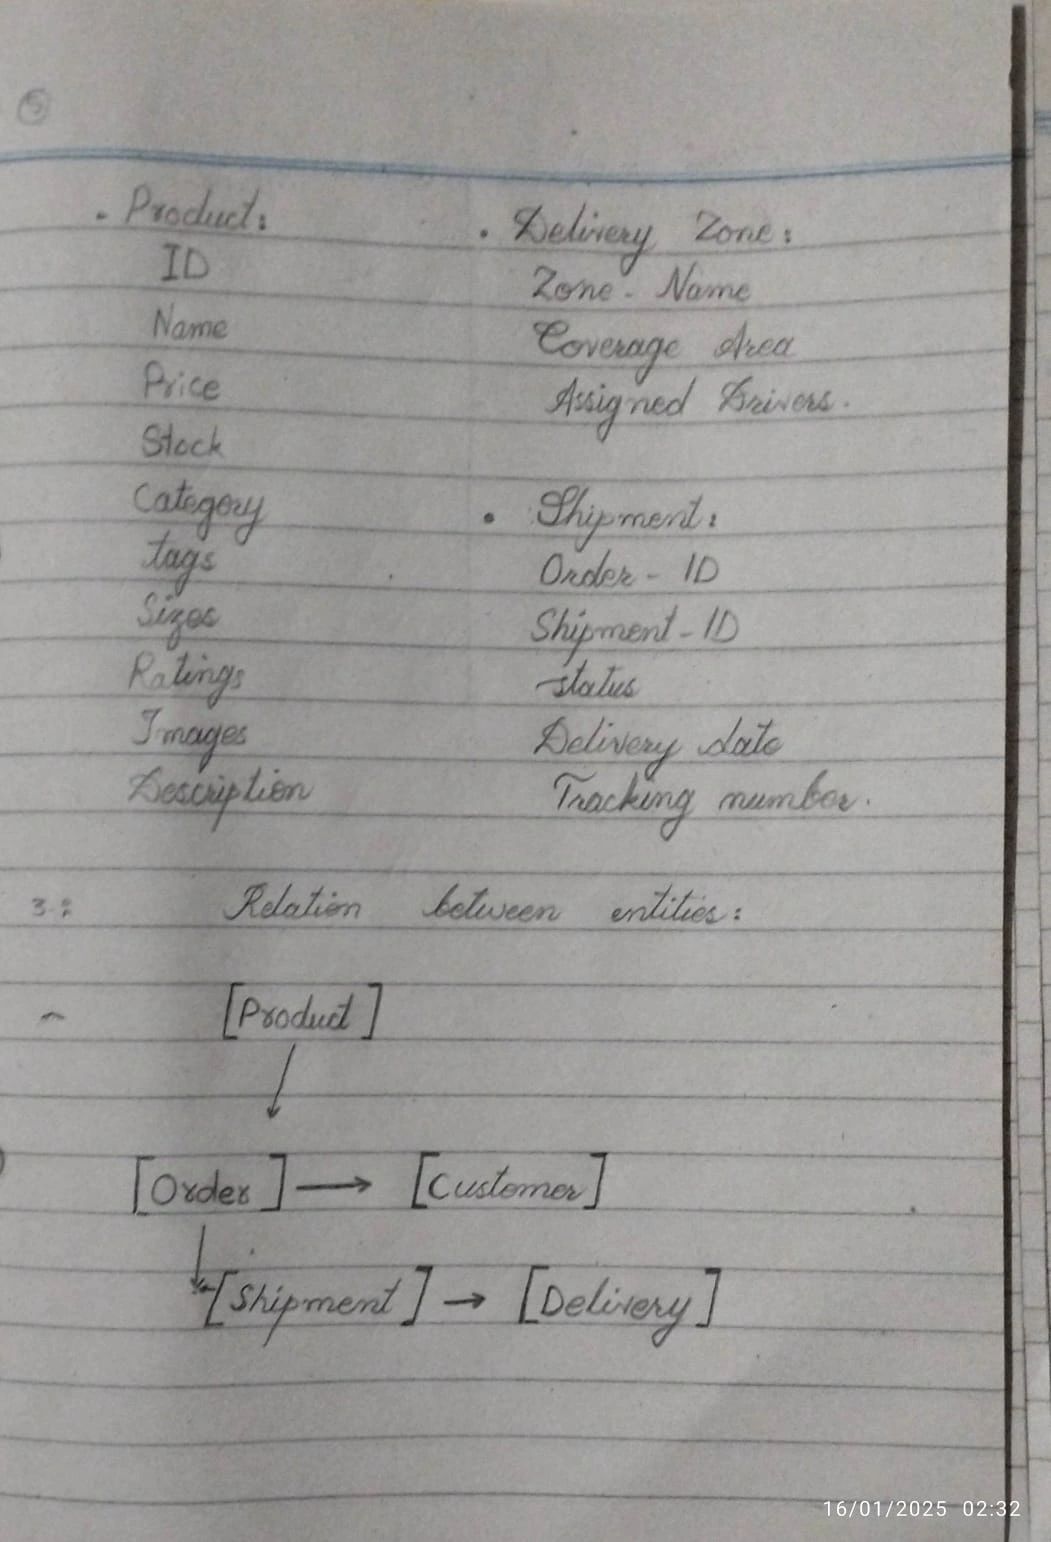 5
• Product:
ID
Name
Price
Stock
Category
tags
Sizes
Ratings
Images
Description
• Delivery Zone:
Zone - Name
Coverage Area
Assigned Drivers.
• Shipment:
Order - ID
Shipment - ID
status
Delivery date
Tracking number.
3-: Relation between entities:
[Product]
[Order] → [Customer]
[Shipment] → [Delivery]
16/01/2025 02:32